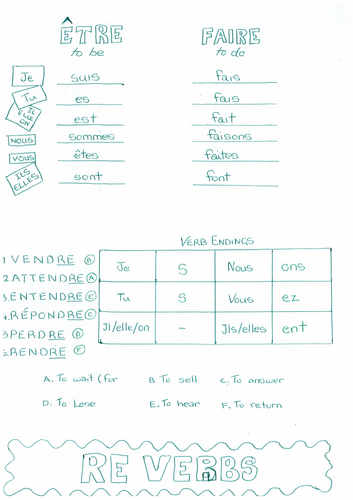 ÊTRE FAIRE
to be to do
Je suis fais
Tu es fais
IL ELLE ON est fait
NOUS sommes faisons
VOUS êtes faites
ILS ELLES sont font
VERB ENDINGS
1 VENDRE B Je S Nous ons
2 ATTENDRE A
3. ENTENDRE E Tu S Vous ez
4. RÉPONDRE C
5. PERDRE D Il/elle/on - Ils/elles ent
6. RENDRE F
A. To wait (for B To sell C. To answer
D. To Lose E. To hear F. To return
RE VERBS